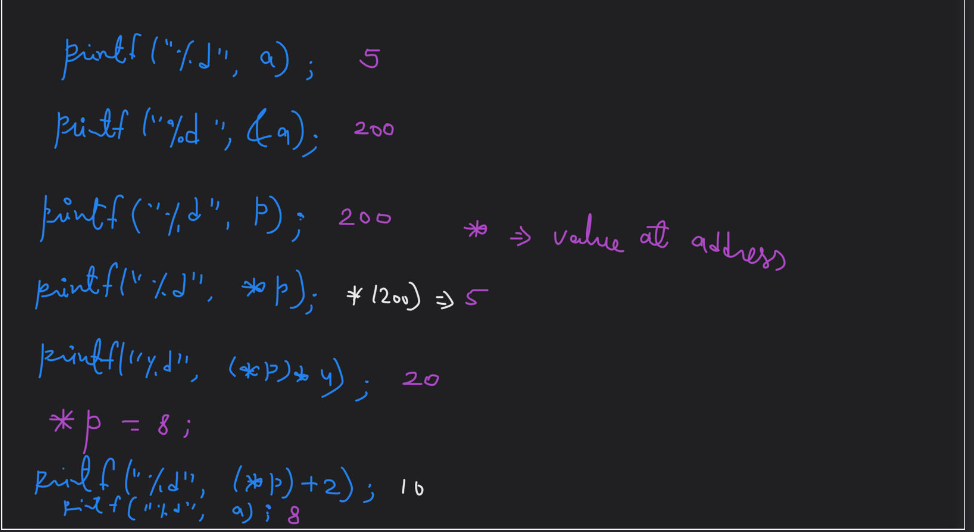 printf("%d", a); 5
printf("%d", &a); 200
printf("%d", p); 200
* => value at address
printf("%d", *p); *(200) => 5
printf("%d", (*p)*4); 20
*p = 8;
printf("%d", (*p)+2); 10
printf("%d", a); 8